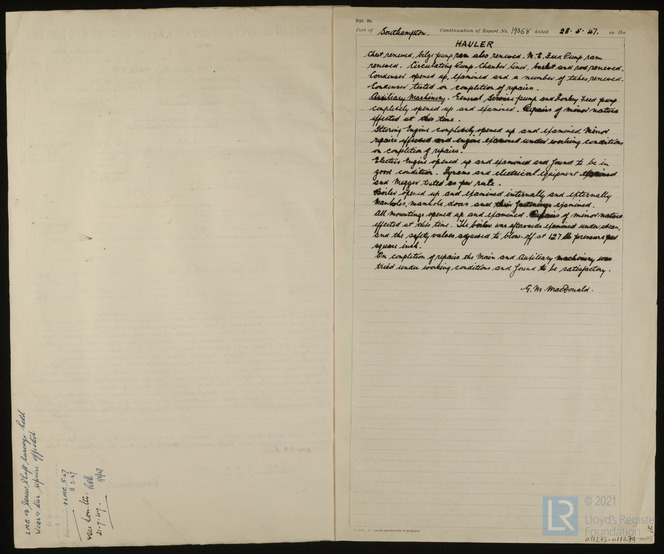 Rpt. 9a.
Port of Southampton. Continuation of Report No. 19068 dated 28. 5. 47. on the
HAULER
Chest renewed, bilge pump ram also renewed. M.E. Feed Pump ram
renewed. Circulating Pump chamber lined, bucket and rod renewed.
Condenser opened up, examined and a number of tubes renewed.
Condenser tested on completion of repairs.
Auxiliary Machinery. General Service pump and Donkey Feed pump
completely opened up and examined. Repairs of minor nature
effected at this time.
Steering Engine completely opened up and examined. Minor
repairs effected and engine examined under working conditions
on completion of repairs.
Electric Engine opened up and examined and found to be in
good condition. Dynamo and electrical equipment examined
and Megger tested as per rule.
Boiler opened up and examined internally and externally
Manholes, manhole doors and their fastenings examined.
All mountings opened up and examined. Repairs of minor nature
effected at this time. The boiler was afterwards examined under steam,
and the safety valves adjusted to blow off at 127 lb pressure per
square inch.
On completion of repairs the Main and Auxiliary machinery was
tried under working conditions and found to be satisfactory.
G. M. MacDonald.
LMC & Screw Shaft survey held
Wear & tear repairs effected
+LMC 5.47
2.7.47.
LR
© 2021
Lloyd's Register
Foundation